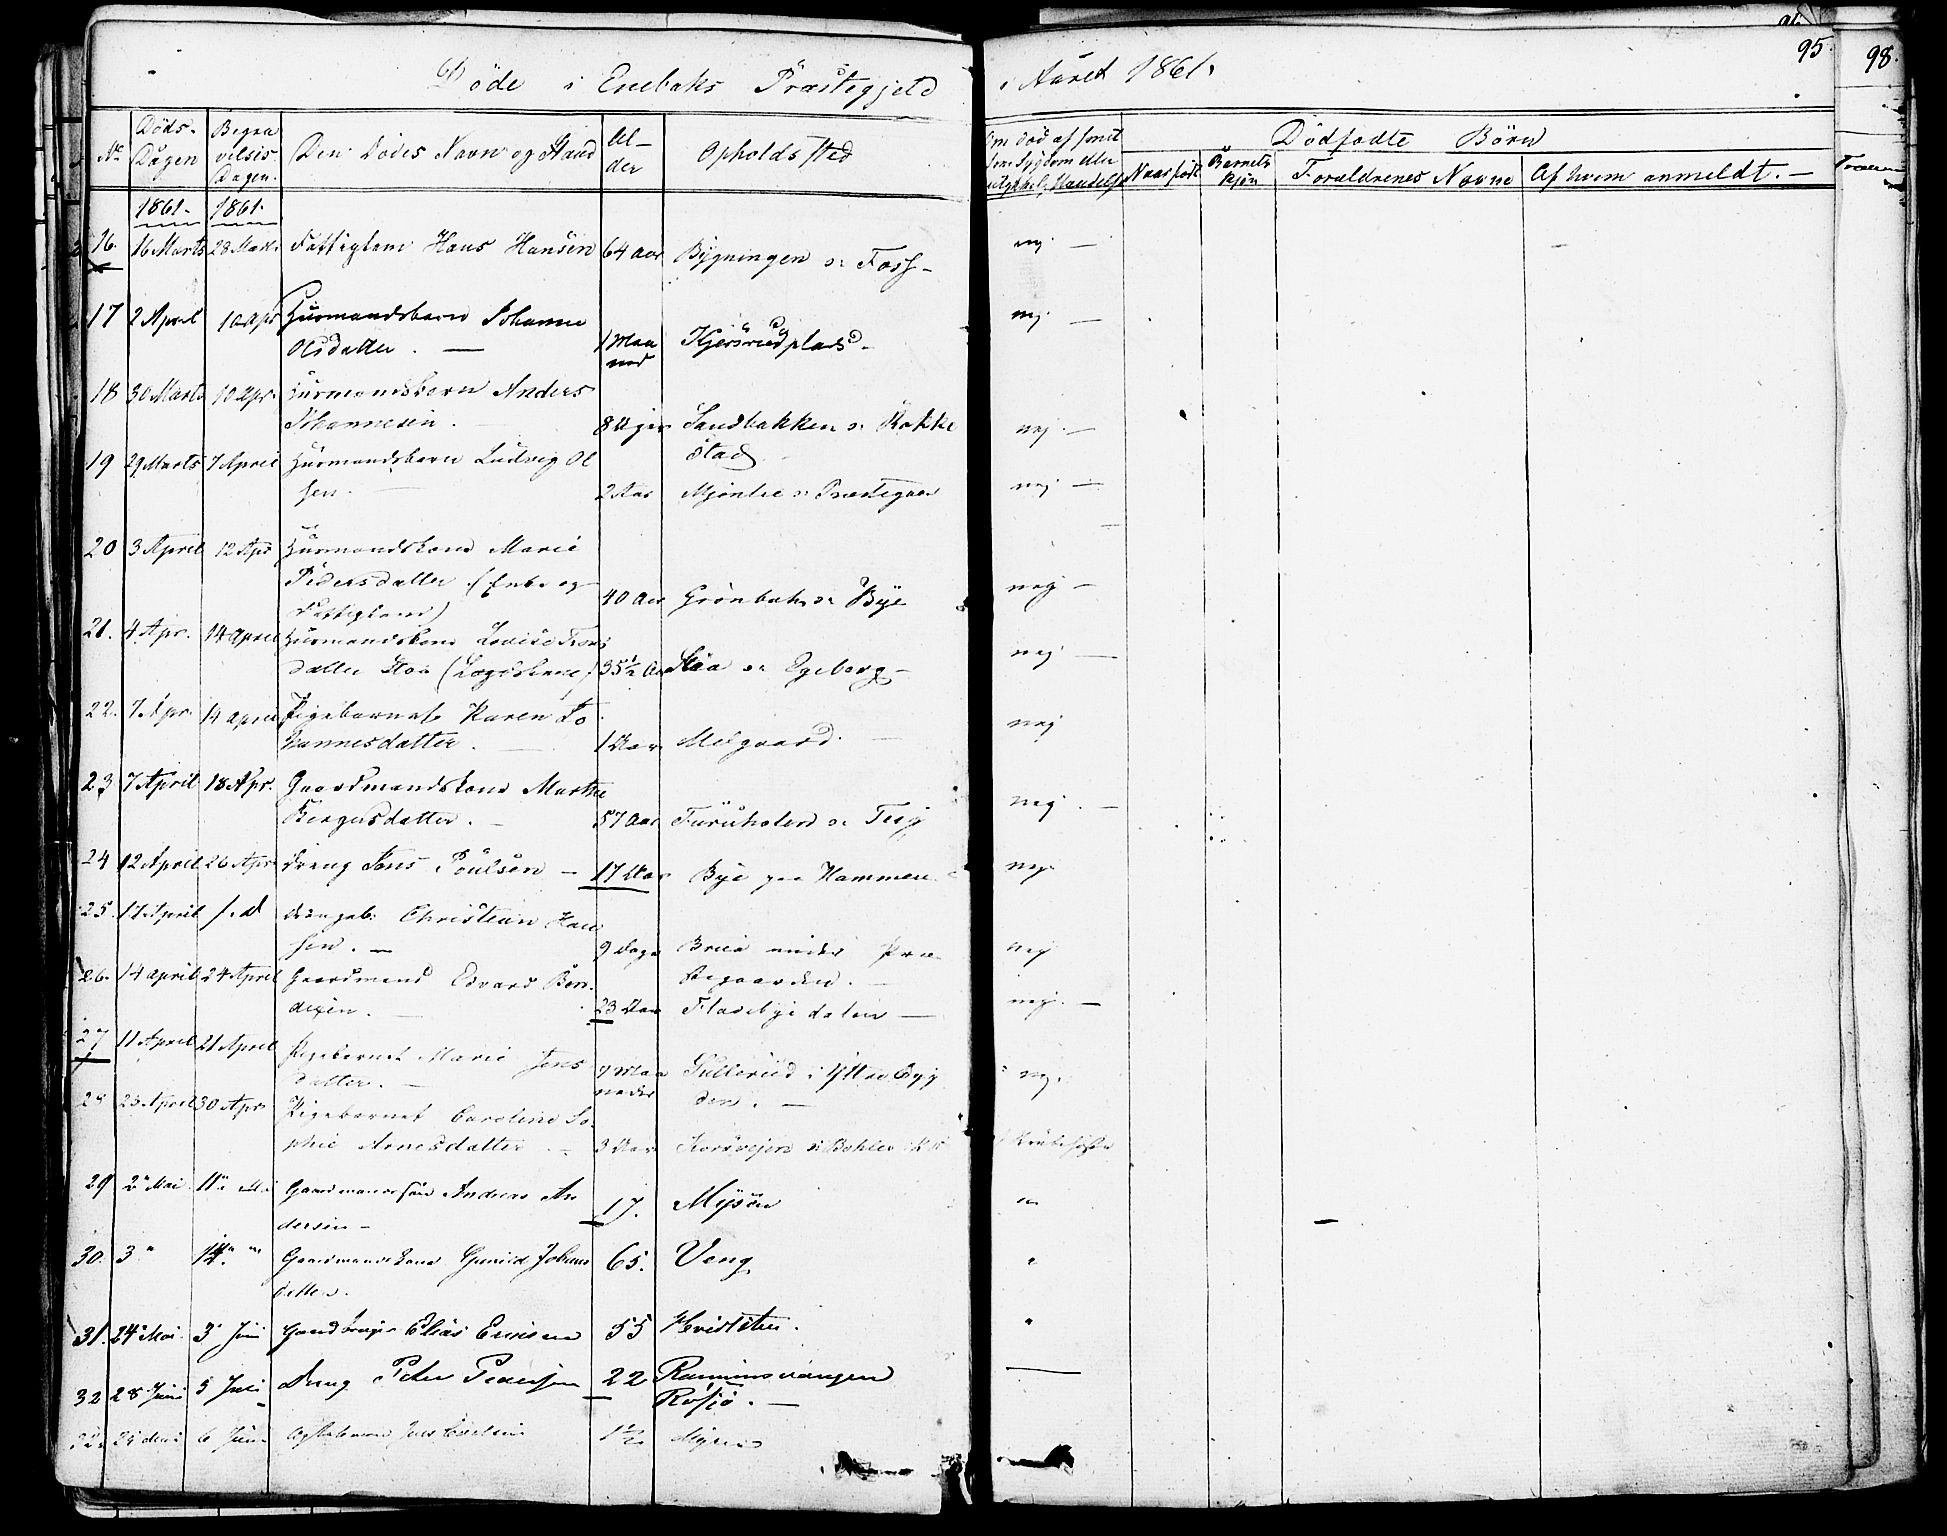 95.
98.
Døde i Enebaks Præstegjeld i Aaret 1861.
No
Døds-Dagen
Begravelses-Dagen.
Den Dødes Navn og Stand
Alder
Opholdssted
Om død af smitsom Sygdom eller
Dødfødte Børn
Naar født
Barnets Kjøn
Forældrenes Navne
Af hvem anmeldt. —
1861. 1861.
16. 16 Marts 28 Marts Fattiglem Hans Hansen 64 Aar Bygningen o: Foss — nej. —
17 2 April 10 Apr Huusmandsbarn Johanne
Olsdatter. — 1 Maaned Kjærsrudplads. nej. —
18 30 Marts 10 Apr. Huusmandsbarn Anders
Johannesen. 8 Uger Sandbakken o: Rakkestad nej. —
19 29 Marts 7 April Huusmandsbarn Ludvig Olsen. — 2 Aar o: Præstegaar nej —
20 3 April 12 Apr Huusmandskone Marie
Pedersdatter (Enke og
Fattiglem) 40 Aar Grønbak o: Bye nej —
21. 4 Apr. 14 April Huusmandskone Lovise
datter Stoa 35½ Aar Stoa o: Egeberg — nej —
22. 7 Apr. 14 April Pigebarnet Karen Johannesdatter. — 1 Aar Melgaard. — nej
23 7 April 18 Apr. Gaardmandskone Marthe
Birgersdatter. — 57 Aar Furuholen o: nej. —
24 12 April 26 Apr Dreng Jens Poulsen — 17 Aar Bye paa Hammeren nej.
25. 17 April s.d Drengeb: Christian Hansen. — 9 Dage under Præstegaarden. — nej
26. 14 April 24 April Gaardmand Edvard Bendixen. — 23 Aar Flatebyedalen — nej. —
27 11 April 21 April Pigebarnet Marie Jensdatter. — 7 Maaneder i Ytre Bygden. — nej.
28 23 April 30 Apr Pigebarnet Caroline Sophie Arnesdatter — 3 Aar Korsvejen o: Bøhler
29 2 Mai 11 Gaardmandssøn Andreas Andersen — 17. Mysen "
30. 3 " 14 " Gaardmandskone Gunild Johansdatter. 65. Veng "
31. 24 Mai 3 Juni Gaardbruger Elias Eriksen 55 Hvidsten. "
32 28 Juni 5 Juli Dreng Peter Pedersen 22
Røsjø. — —
6 Juni Jens 1½